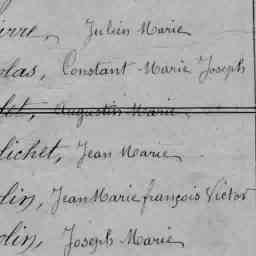 Julien Marie
las, Constant Marie Joseph
let, Augustin Marie
lichet, Jean Marie
lin, Jean Marie françois Victor
olin, Joseph Marie